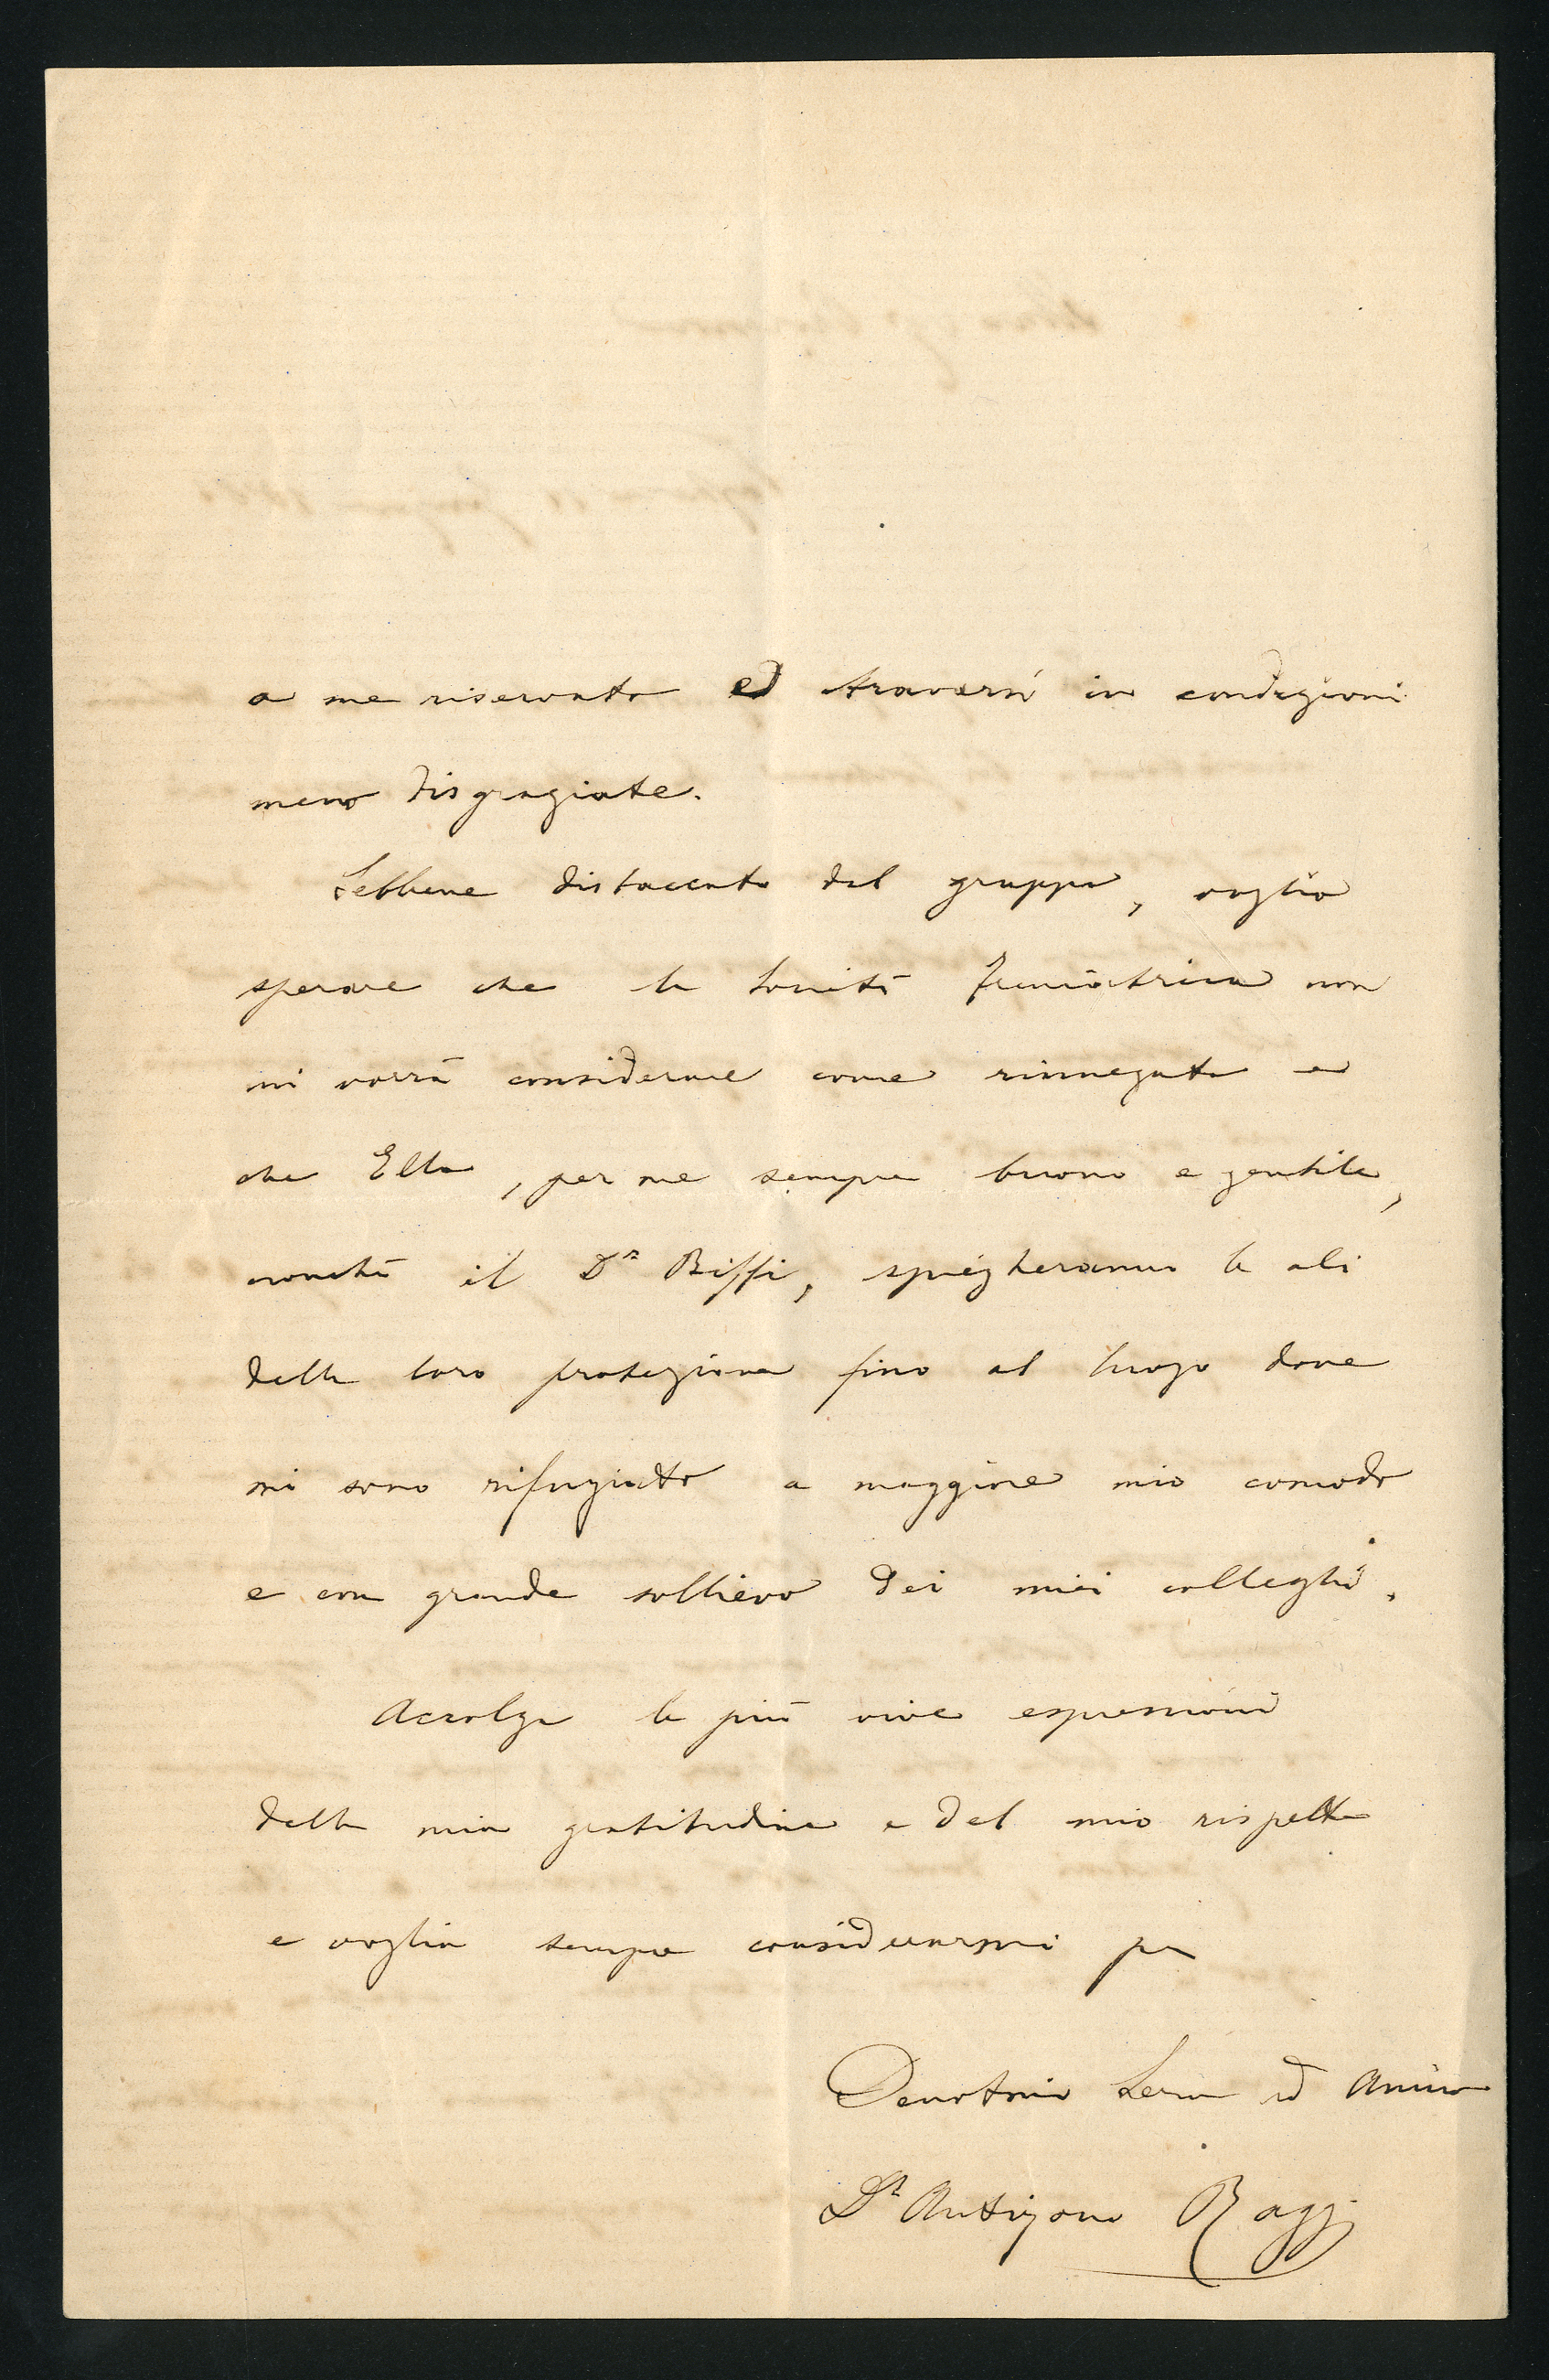 a me riservato ed trovarsi in condizioni
meno disgraziate.
Sebbene distaccato dal gruppo, voglio
sperare che la Società freniatrica non
mi vorrà considerare come rinnegato e
che Ella, per me sempre buono e gentile,
nonchè il Dr Biffi, spiegheranno le ali
della loro protezione fino al luogo dove
mi sono rifugiato a maggiore mio comodo
e con grande sollievo dei miei colleghi.
Accolga le più vive espressioni
della mia gratitudine e del mio rispetto
e voglia sempre considerarmi per
Devotmo Servo ed Amico
Dr Antigono Raggi